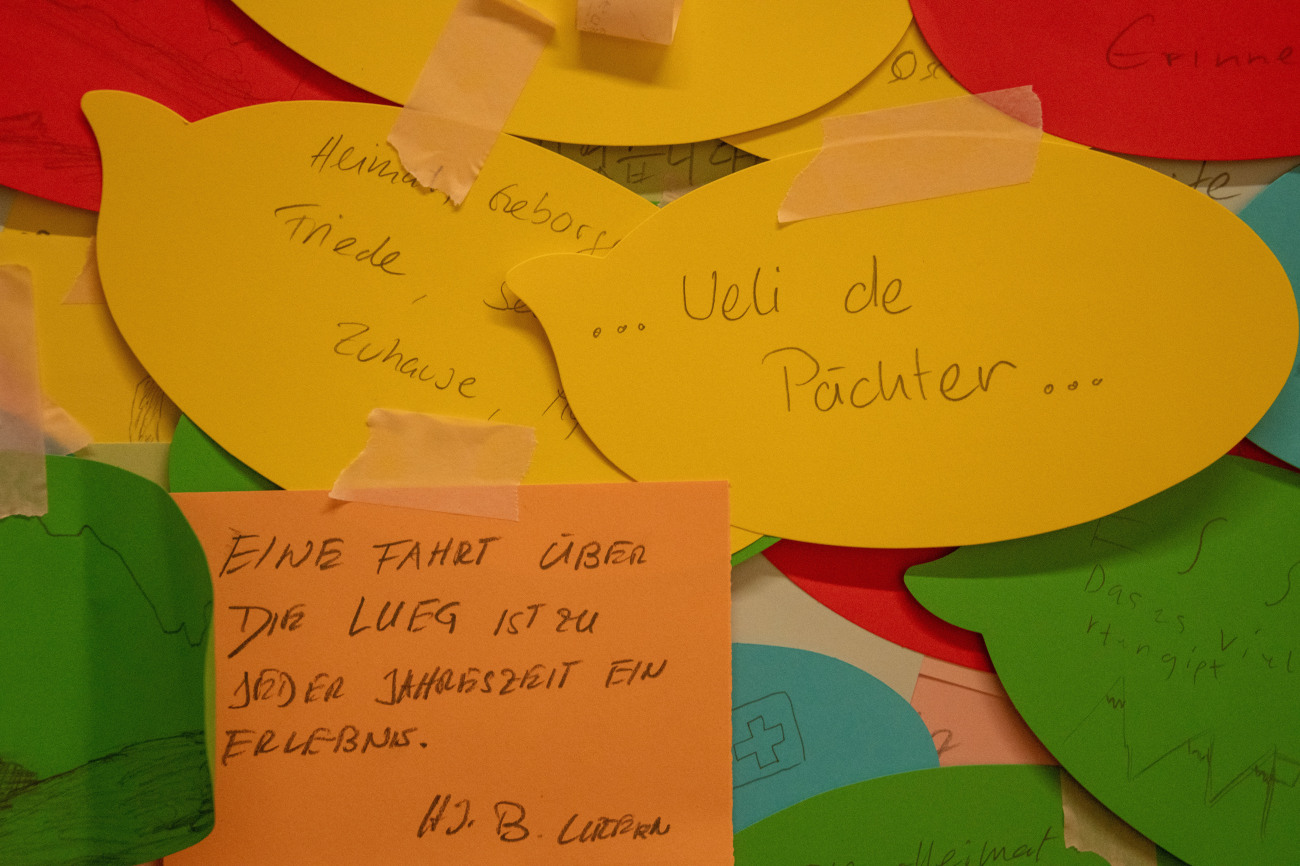 Erinne
Os
Heima, Gebor
Friede,
Zuhause,
... Ueli de
Pächter ...
EINE FAHRT ÜBER
DIE LUEG IST ZU
JEDER JAHRESZEIT EIN
ERLEBNIS.
HJ. B. LUZERN
Das is
Heimat